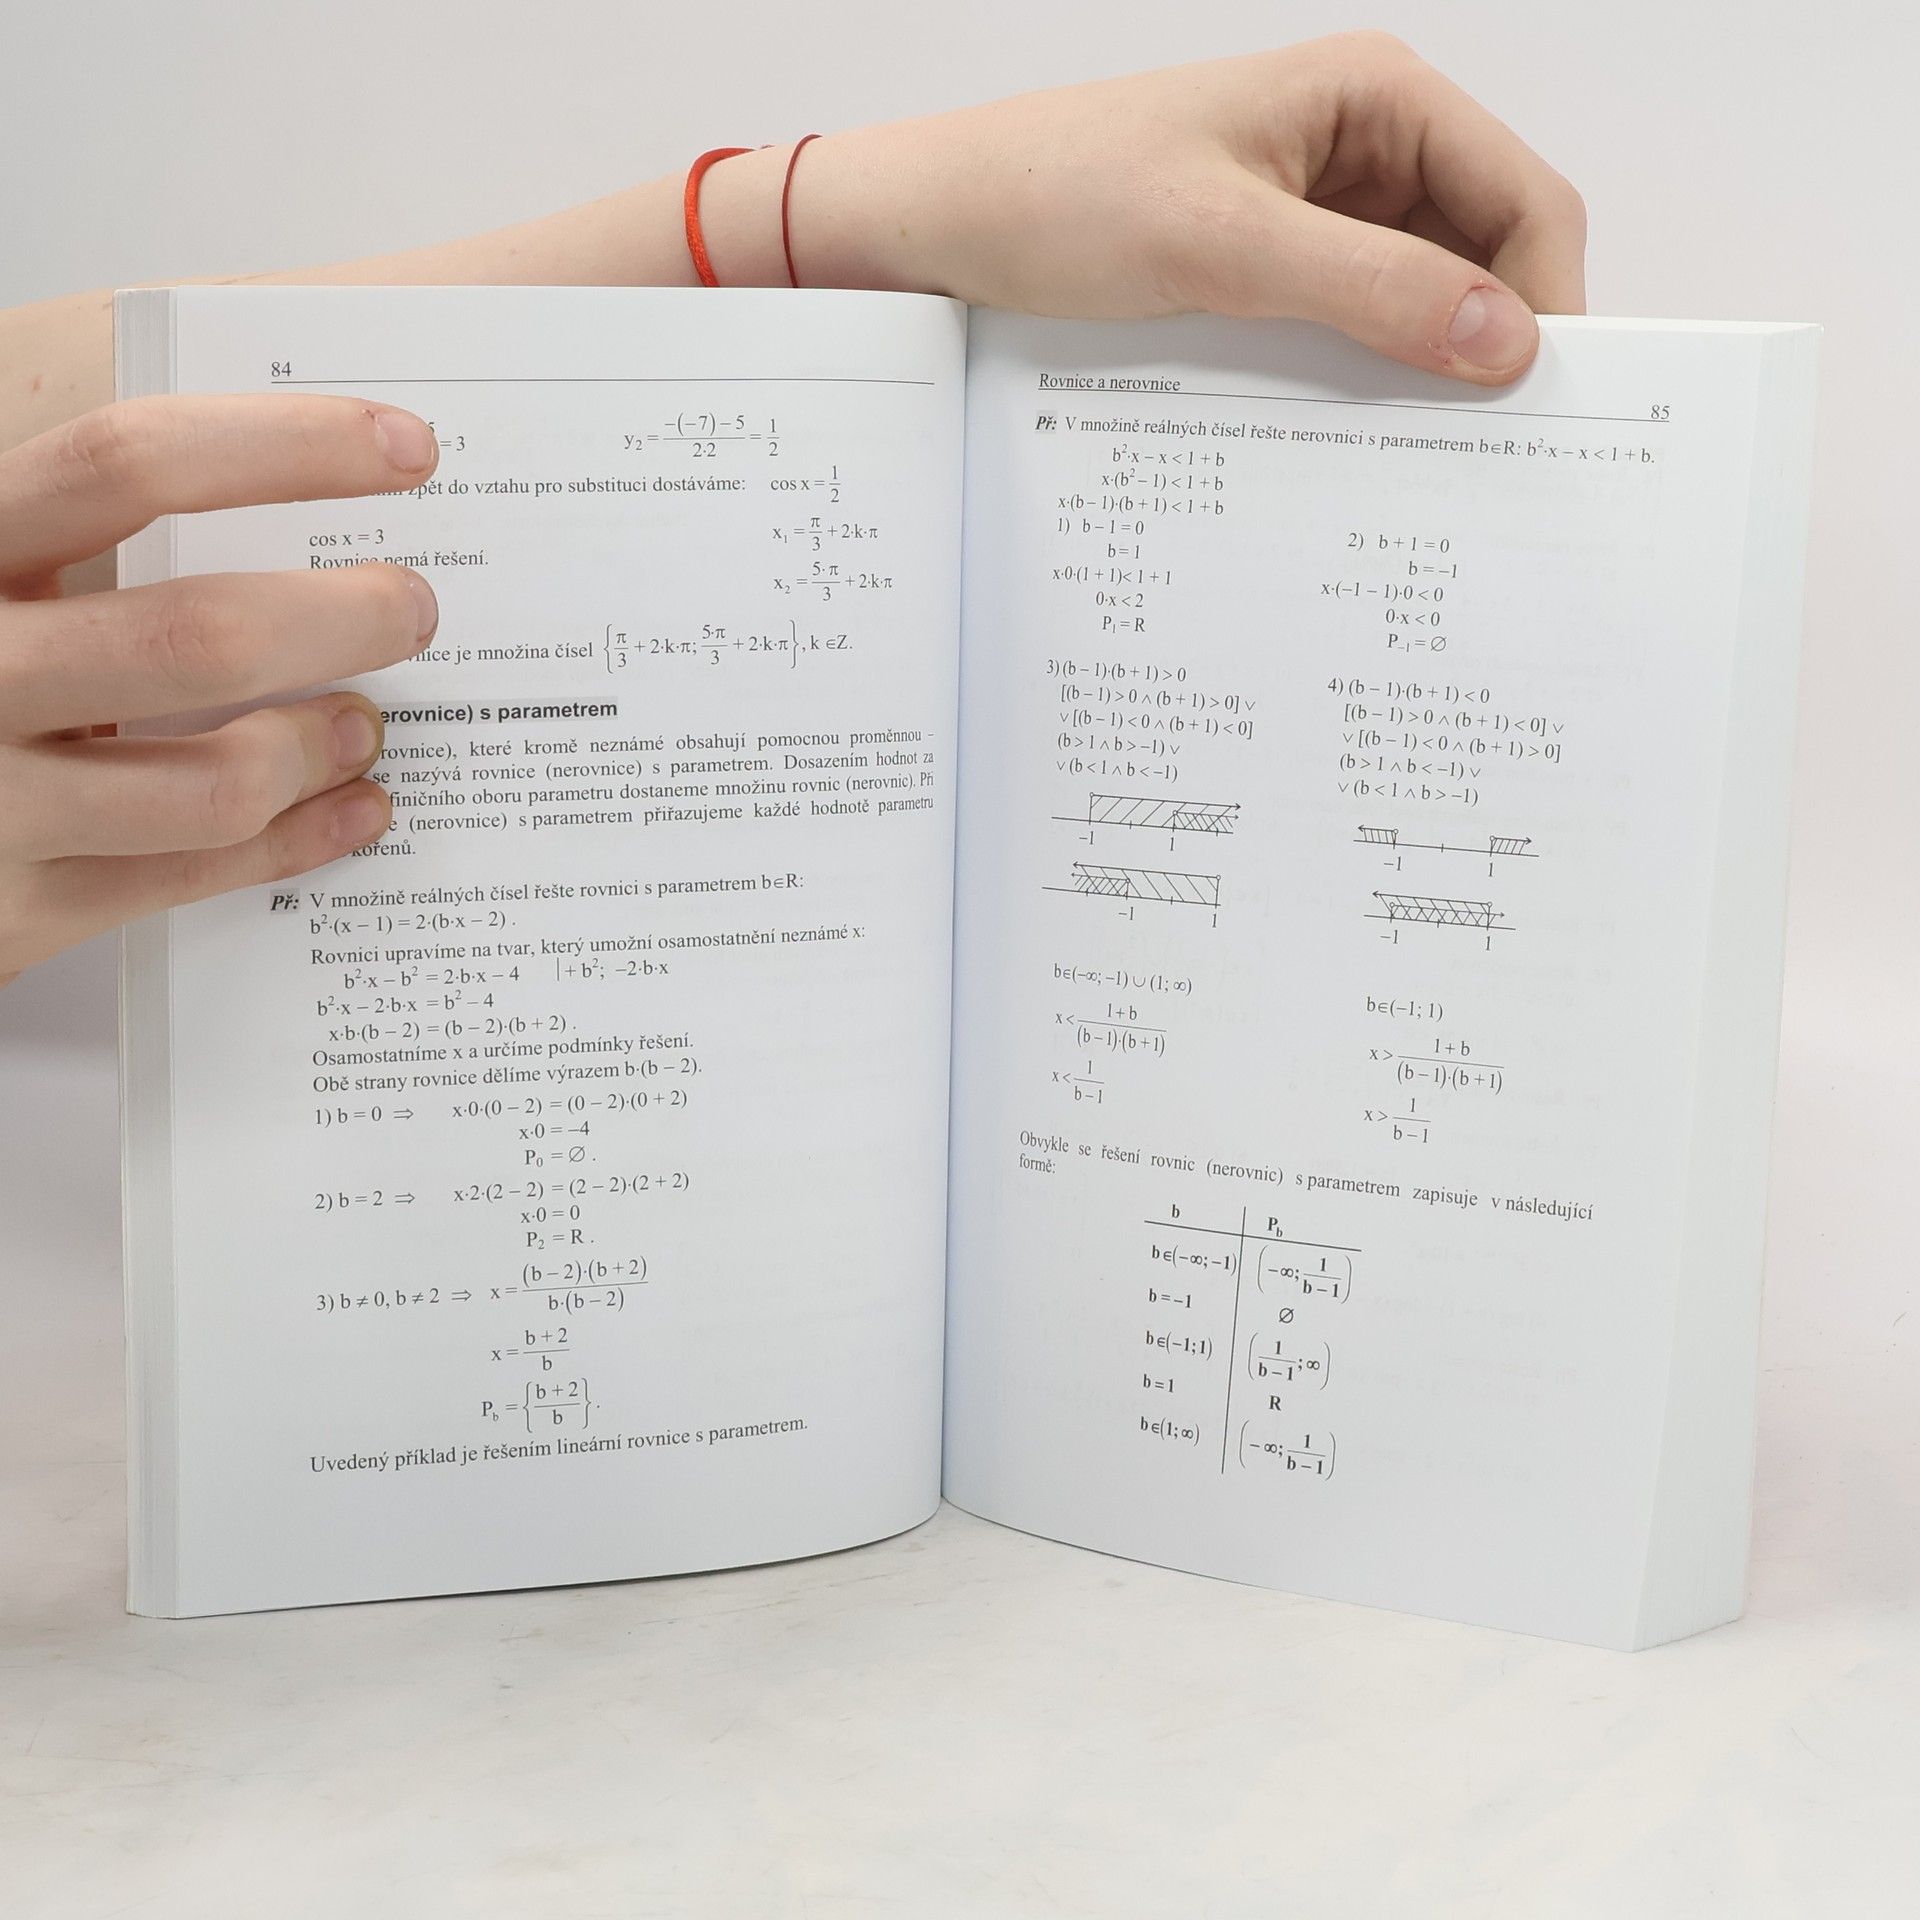 84
= 3    y₂ = (−(−7) − 5)/(2·2) = 1/2
zpět do vztahu pro substituci dostáváme: cos x = 1/2
cos x = 3    x₁ = π/3 + 2·k·π
Rovnice nemá řešení.
x₂ = 5·π/3 + 2·k·π
je množina čísel {π/3 + 2·k·π; 5·π/3 + 2·k·π}, k ∈Z.
s parametrem
které kromě neznámé obsahují pomocnou proměnnou –
se nazývá rovnice (nerovnice) s parametrem. Dosazením hodnot za
oboru parametru dostaneme množinu rovnic (nerovnic). Při
(nerovnice) s parametrem přiřazujeme každé hodnotě parametru
kořenů.
Př: V množině reálných čísel řešte rovnici s parametrem b∈R:
b²·(x – 1) = 2·(b·x – 2) .
Rovnici upravíme na tvar, který umožní osamostatnění neznámé x:
b²·x – b² = 2·b·x – 4    | + b²; –2·b·x
b²·x – 2·b·x = b² – 4
x·b·(b – 2) = (b – 2)·(b + 2) .
Osamostatníme x a určíme podmínky řešení.
Obě strany rovnice dělíme výrazem b·(b – 2).
1) b = 0 ⇒ x·0·(0 – 2) = (0 – 2)·(0 + 2)
x·0 = –4
P₀ = ∅ .
2) b = 2 ⇒ x·2·(2 – 2) = (2 – 2)·(2 + 2)
x·0 = 0
P₂ = R .
3) b ≠ 0, b ≠ 2 ⇒ x = ((b – 2)·(b + 2))/(b·(b – 2))
x = (b + 2)/b
P_b = {(b + 2)/b}.
Uvedený příklad je řešením lineární rovnice s parametrem.
Rovnice a nerovnice    85
Př: V množině reálných čísel řešte nerovnici s parametrem b∈R: b²·x – x < 1 + b.
b²·x – x < 1 + b
x·(b² – 1) < 1 + b
x·(b – 1)·(b + 1) < 1 + b
1) b – 1 = 0
b = 1
x·0·(1 + 1)< 1 + 1
0·x < 2
P₁ = R
2) b + 1 = 0
b = –1
x·(–1 – 1)·0 < 0
0·x < 0
P₋₁ = ∅
3) (b – 1)·(b + 1) > 0
[(b – 1) > 0 ∧ (b + 1) > 0] ∨
∨ [(b – 1) < 0 ∧ (b + 1) < 0]
(b > 1 ∧ b > –1) ∨
∨ (b < 1 ∧ b < –1)
–1 1
–1 1
b∈(–∞; –1) ∪ (1; ∞)
x < (1+b)/((b–1)·(b+1))
x < 1/(b–1)
4) (b – 1)·(b + 1) < 0
[(b – 1) > 0 ∧ (b + 1) < 0] ∨
∨ [(b – 1) < 0 ∧ (b + 1) > 0]
(b > 1 ∧ b < –1) ∨
∨ (b < 1 ∧ b > –1)
–1 1
–1 1
b∈(–1; 1)
x > (1+b)/((b – 1)·(b + 1))
x > 1/(b – 1)
Obvykle se řešení rovnic (nerovnic) s parametrem zapisuje v následující
formě:
b    P_b
b∈(–∞; –1)    (–∞; 1/(b – 1))
b = –1    ∅
b∈(–1; 1)    (1/(b – 1); ∞)
b = 1    R
b∈(1; ∞)    (– ∞; 1/(b – 1))